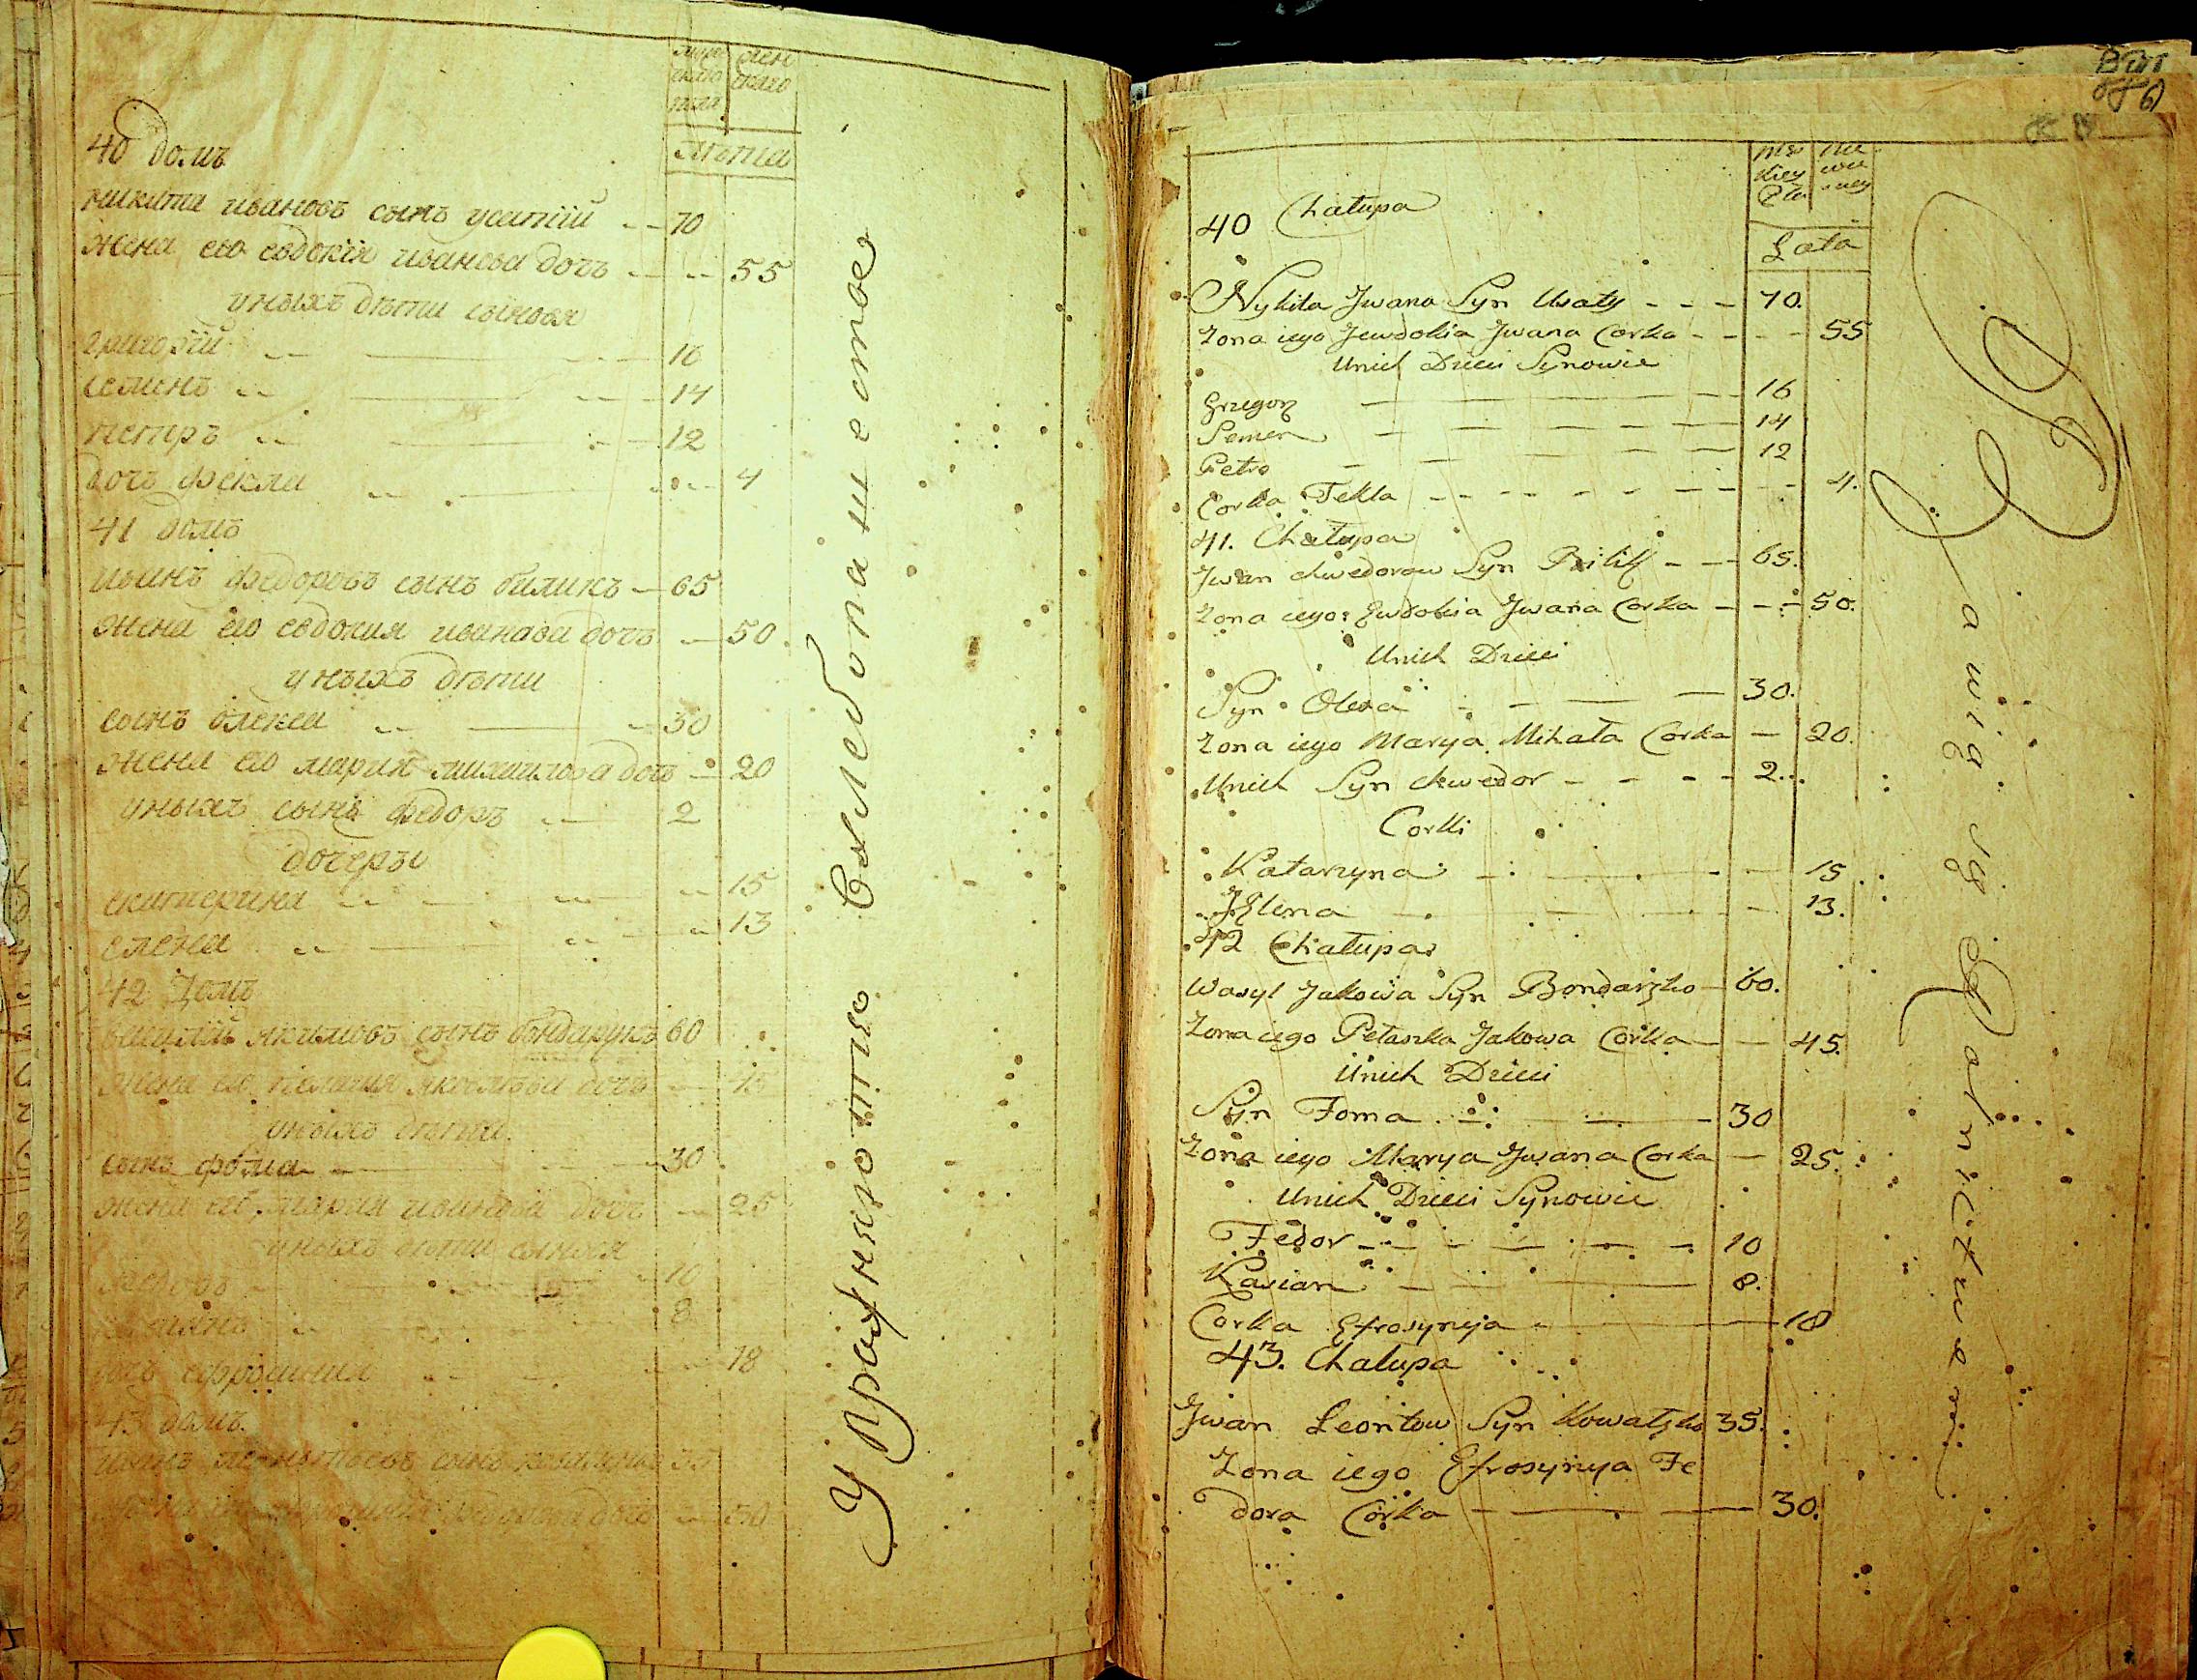 муже
ска
пола
жен
скаго
лѣта
40 домъ
никита ивановъ сынъ усатій 70
жена его евдокія иванова дочь 55
у ныхъ дѣти сыновя
григорій 16
семенъ 14
петръ 12
дочь фекла 4
41 домъ
иванъ федоровъ сынъ биликъ 65
жена его евдокия иванова дочь 50
у ныхъ дѣти
сынъ олекса 30
жена его мария михаилова дочь 20
у ныхъ сынъ федоръ 2
дочеры
екатерина 15
елена 13
42 Домъ
василій якимовъ сынъ бондарукъ 60
жена его дочь 45
у ныхъ дѣти
сынъ фома 30
жена его мария иванова дочь 25
у ныхъ дѣти сыновя
10
8
дочь ефросиния 18
43 домъ
иванъ сынъ 35
дочь 30
Упражняются в хлебопашестве
40 Chałupa
Męs
kiey
Płci
Nie
wie
sciey
Lata
Nykita Jwana Syn Usaty 70.
Zona iego Jewdokia Jwana Corka 55
Unich Dzieci Synowie
Grzegorz 16
Semen 14
Petro 12
Corka Tekla 4.
41. Chałupa
Jwan Chwedorow Syn Bilik 65.
Zona iego Ewdokia Jwana Corka 50.
Unich Dzieci
Syn Olexa 30.
Zona iego Marya Mihała Corka 20.
Unich Syn Chwedor 2.
Corki
Katarzyna 15
Jelena 13.
42 Chałupa
Wasyl Jakowa Syn Bondarzko 60.
Zona iego Petaszka Jakowa Corka 45.
Unich Dzieci
Syn Foma 30
Zona iego Marya Jwana Corka 25.
Unich Dzieci Synowie
Fedor 10
Kasian 8.
Corka Efrosynya 18
43. Chałupa
Jwan Leontow Syn Kowalzko 35.
Zona iego Efrosynya Fe
dora Corka 30.
Bawią się Rolnictwem